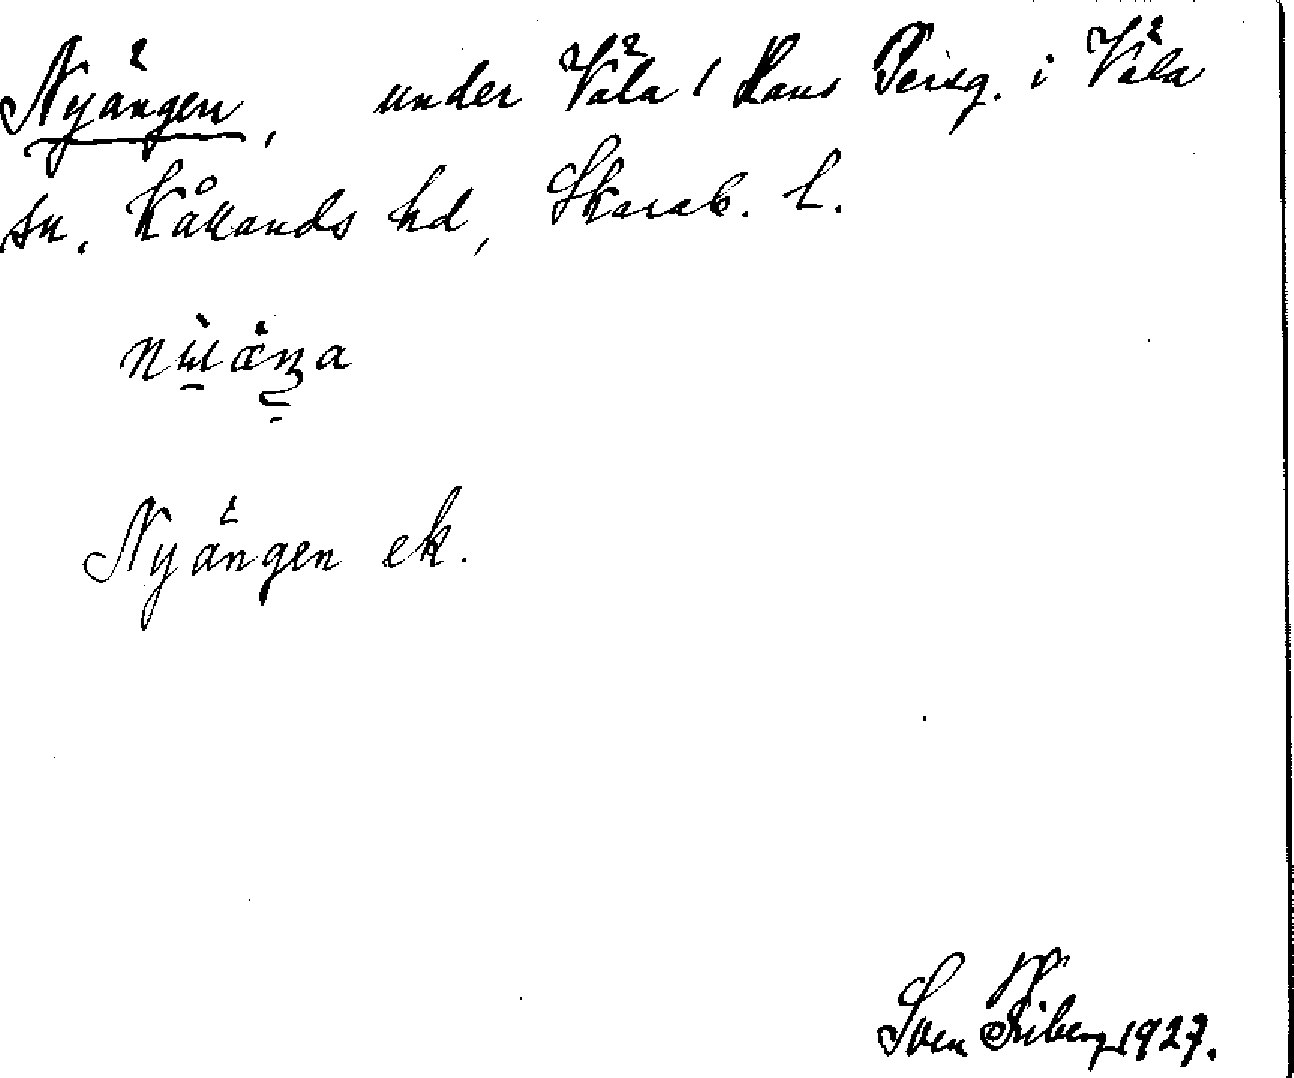 Nyängen, under Väla / Hans Persg. i Väla
sn. Kållands hd, Skarab. l.
Nyängen ek.
Sven Friberg 1927.